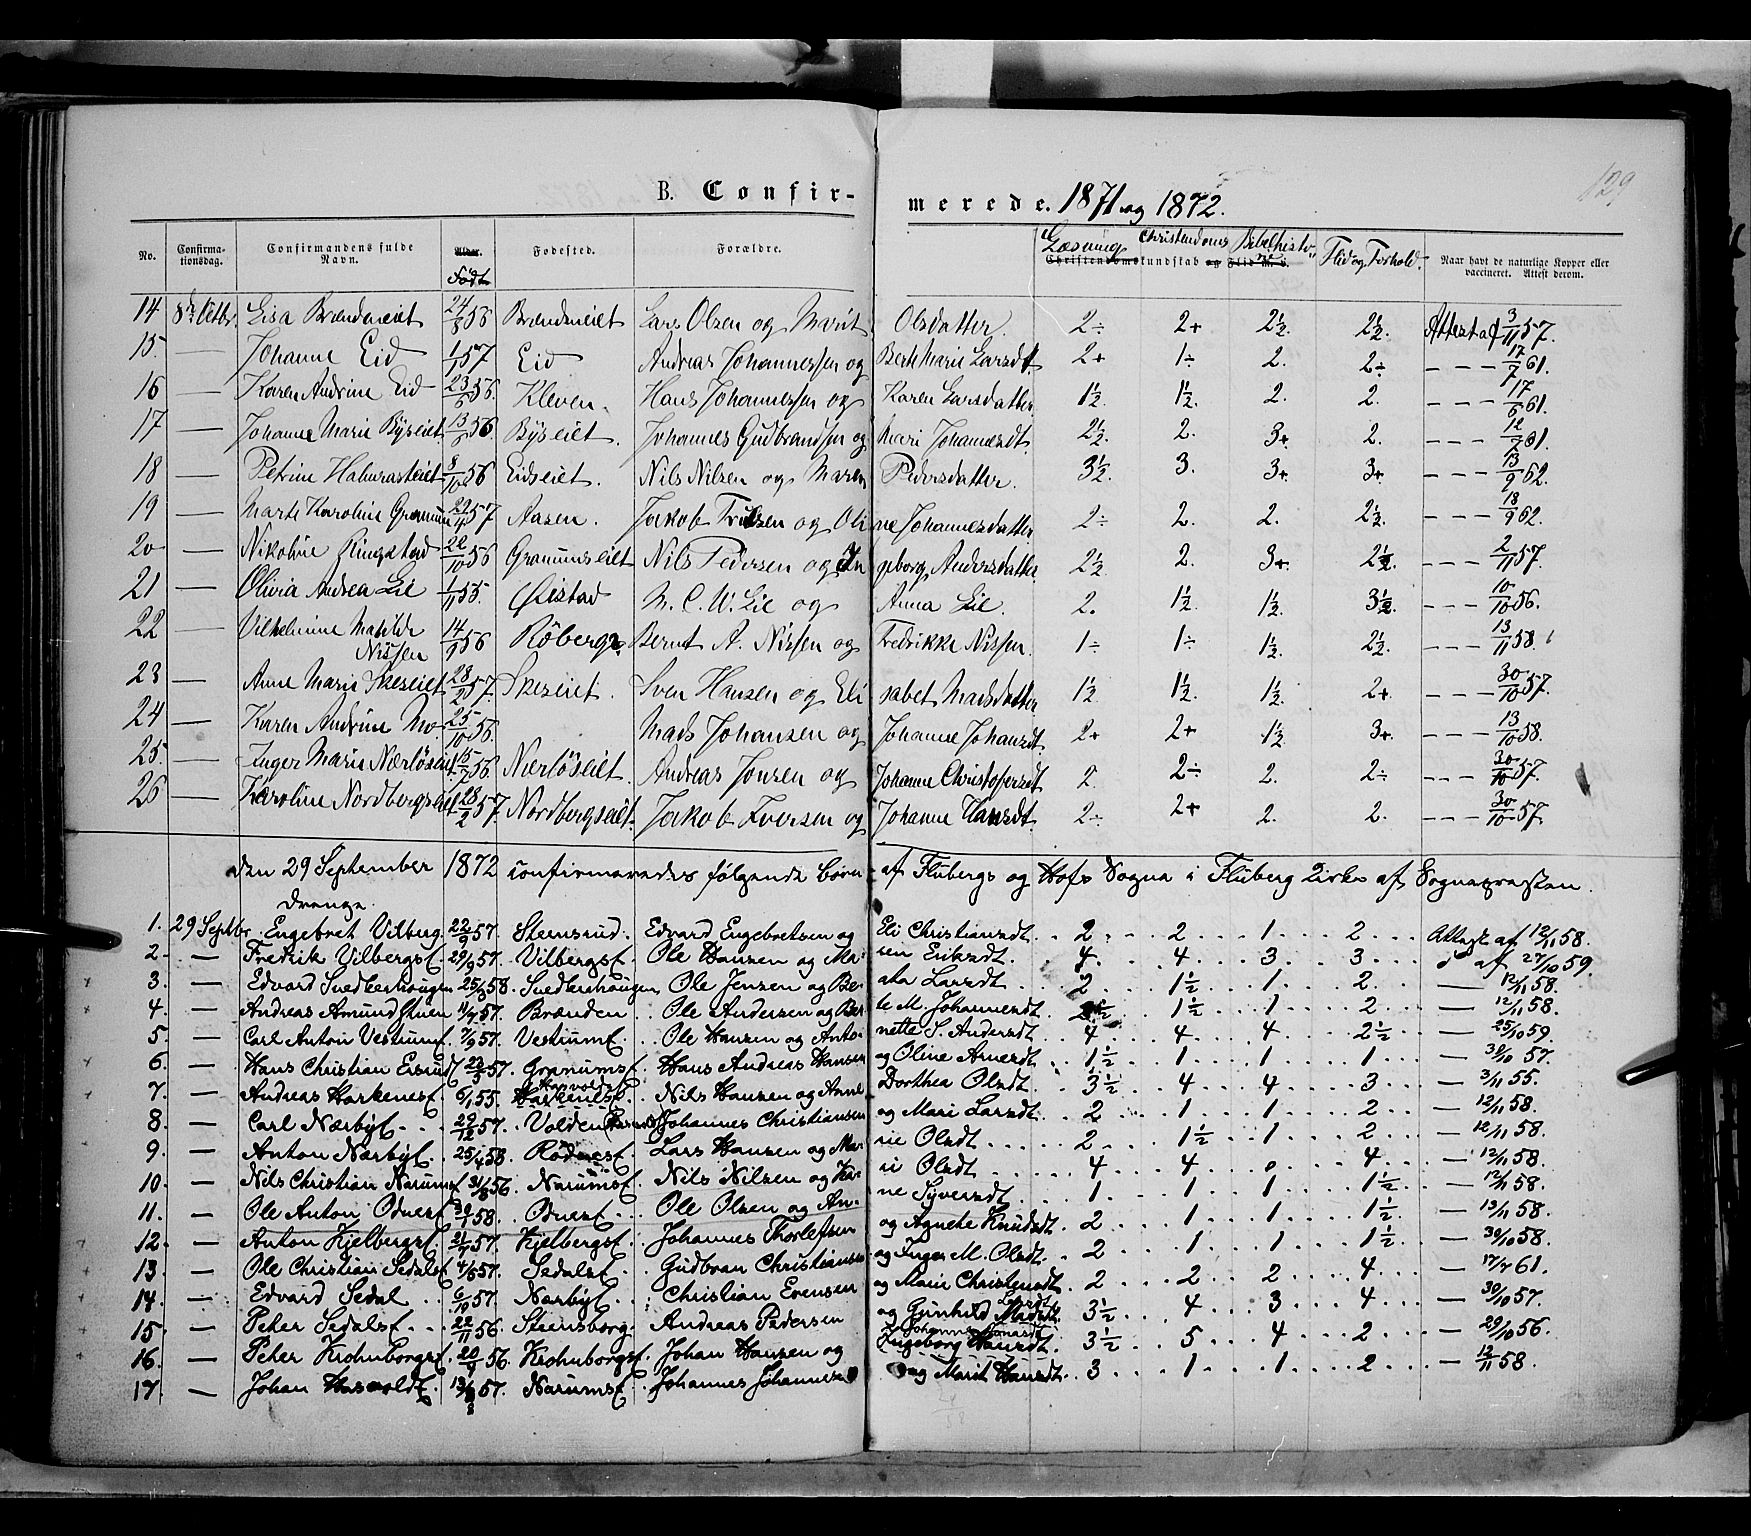 129
B. Confir- merede. 1871 og 1872.
No. Confirmationsdag. Confirmandens fulde Navn. Alder. Født Fødested. Forældre. Læsning Christendomskundskab og Flid m. v. Bibelhistorie Flid og Forhold. Naar havt de naturlige Kopper eller vaccineret. Attest derom.
14 8de Octbr. Lisa Brændmeiet 24/8 56 Brændmeiet Lars Olsen og Marit Olsdatter. 2÷ 2+ 2½. 2½. Attest af 3/11 57.
15. — Johanne Eid 1/1 57 Eid Andreas Johannessen og Berthe Marie Larsdt. 2+ 1÷ 2. 2÷ - - - 17/7 61.
16 — Karen Andrine Eid 23/6 56. Kleven. Hans Johannessen og Karen Larsdatter. 1½. 1½. 2. 2. - - - 17/6 61.
17 — Johanne Marie Byseiet 13/6 56 Byseiet. Johannes Gudbrandsen og Mari Johannesdt. 2½. 2. 3+ 2. - - - 12/7 61.
18 — Petrine Halmrasteiet 8/10 56 Eidseiet. Nils Nilsen og Maren Pedersdatter. 3½. 3. 3+ 3+ - - - 13/9 62.
19 — Marte Karoline Granum 29/4 57 Aasen. Jakob Trulsen og Oline Johannesdatter. 2÷ 2. 2. 2½. - - - 18/9 62.
20 — Nikoline Ringstad 22/10 56 Granumseiet Nils Pedersen og Ingeborg Andersdatter. 2½. 2. 3+. 2½. - - - 2/11 57.
21 — Olivia Andrea Lie 1/11 55. Øistad M. C. W. Lie og Anna Lie. 2. 1½. 1½. 3½. - - - 10/10 56.
22 — Vilhelmine Matilde Nissen 14/1 56 Röberg. Bernt A. Nissen og Fredrikke Nissen. 1÷ 1÷ 1½. 2½. - - - 13/11 58
23 — Anne Marie Skeseiet 28/2 57. Skeseiet. Sven Hansen og Elisabet Madsdatter 1½. 1½. 1½ 2+ - - - 30/10 57.
24 — Karen Andrine Mo 25/10 56. Mads Johansen og Johanne Johansdt. 2+ 2+ 1½ 3+. - - - 13/10 58.
25. — Inger Marie Nærlöseiet 15/7 56. Nærlöseiet. Andreas Jonsen og Johanne Christoffersdt. 2. 2÷ 2. 2÷ - - - 30/10 57.
26 — Karoline Nordbergseiet 28/2 57. Nordbergseiet. Jakob Iversen og Johanne Hansdt. 2÷ 2+ 2. 2. - - - 30/10 57.
Den 29 September 1872 confirmeredes følgende börn af Flubergs og Hofs Sogne i Fluberg Kirke af Sognepresten.
Drenge.
1. 29 Septbr. Engebret Vilberg 22/9 57. Steensrud. Edvard Engebretsen og Eli Christiansdt. 2 2 1 2 Attest af 12/11 58.
2. — Fredrik Vilbergsf. 29/9 57. Vilbergsf. Ole Hansen og Maren Eriksdt. 4. 4 3 3 d af 27/10 59.
3. — Edvard Svedkerhaugen 25/3 58. Svedkerhaugen Ole Jensen og Beata Larsdt. 2 1½ 1 2 — 12/11 58.
4. — Andreas Amundstuen 1/7 57. Brænden Ole Andersen og Berte M. Johannesdt. 2½ 1½ 1 2 — 12/11 58.
5. — Carl Anton Vestumsf. 7/9 57. Vestumsf. Ole Hansen og Antonette S. Andersdt. 4 4 4 2½ — 25/10 59.
6. — Hans Christian Eisrud 23/3 57. Granumsf. Hans Andreas Hansen og Oline Arnesdt. 1½ 1 1 1 — 30/10 57.
7. — Andreas Harkensf. 6/1 55. Harkensf. Nils Hansen og Anne Dorthea Olsdt. 3½ 4 4 3 — 3/11 55.
8. — Carl Nærbysf. 29/12 57. Volden Johannes Christiansen og Mari Larsdt. 2 1 1 2 — 12/11 58.
9. — Anton Nærbysf. 25/4 58. Rödnesf. Lars Hansen og Marie Olsdt. 2 1½ 1 2 — 12/11 58.
10. — Nils Christian Narumsf. 31/8 56. Narumsf. Nils Nilsen og Kari Olsdt. 4 4 0 4 — 12/11 58.
11. — Ole Anton Odnesf. 30/1 58. Odnesf. Ole Olsen og Anne Syversdt. 1 1 1 1½ — 12/11 58.
12. — Anton Kjelbergsf. 21/7 57. Kjelbergsf. Johannes Thorleifsen og Agnethe Knudsdt. 2 1 1 1½ — 13/11 58.
13. — Ole Christian Sedalsf. 4/5 57. Sedalsf. Gudbran Christiansen og Inger M. Olsdt. 2 1 1 1½ — 30/10 58.
14. — Edvard Sedal 6/10 57. Narbysf. Christian Evensen og Marie Christensdt. 2 2 2 4 — 17/7 61.
15. — Peter Sedalsf. 22/11 56. Steensborg. Andreas Pedersen og Gunhild Larsdt. 3½ 4 3 4 — 30/10 57.
16. — Peter Krohnborgsf. 20/9 56. Krohnborgsf. Johan Hansen og Ingeborg Hansdt. 3½ 5 4 2 — 29/10 56.
17. — Johan Hasvoldsf. 13/8 57. Narumsf. Johannes Johannesen og Marit Hansdt. 3 1 1 2 — 12/11 58.